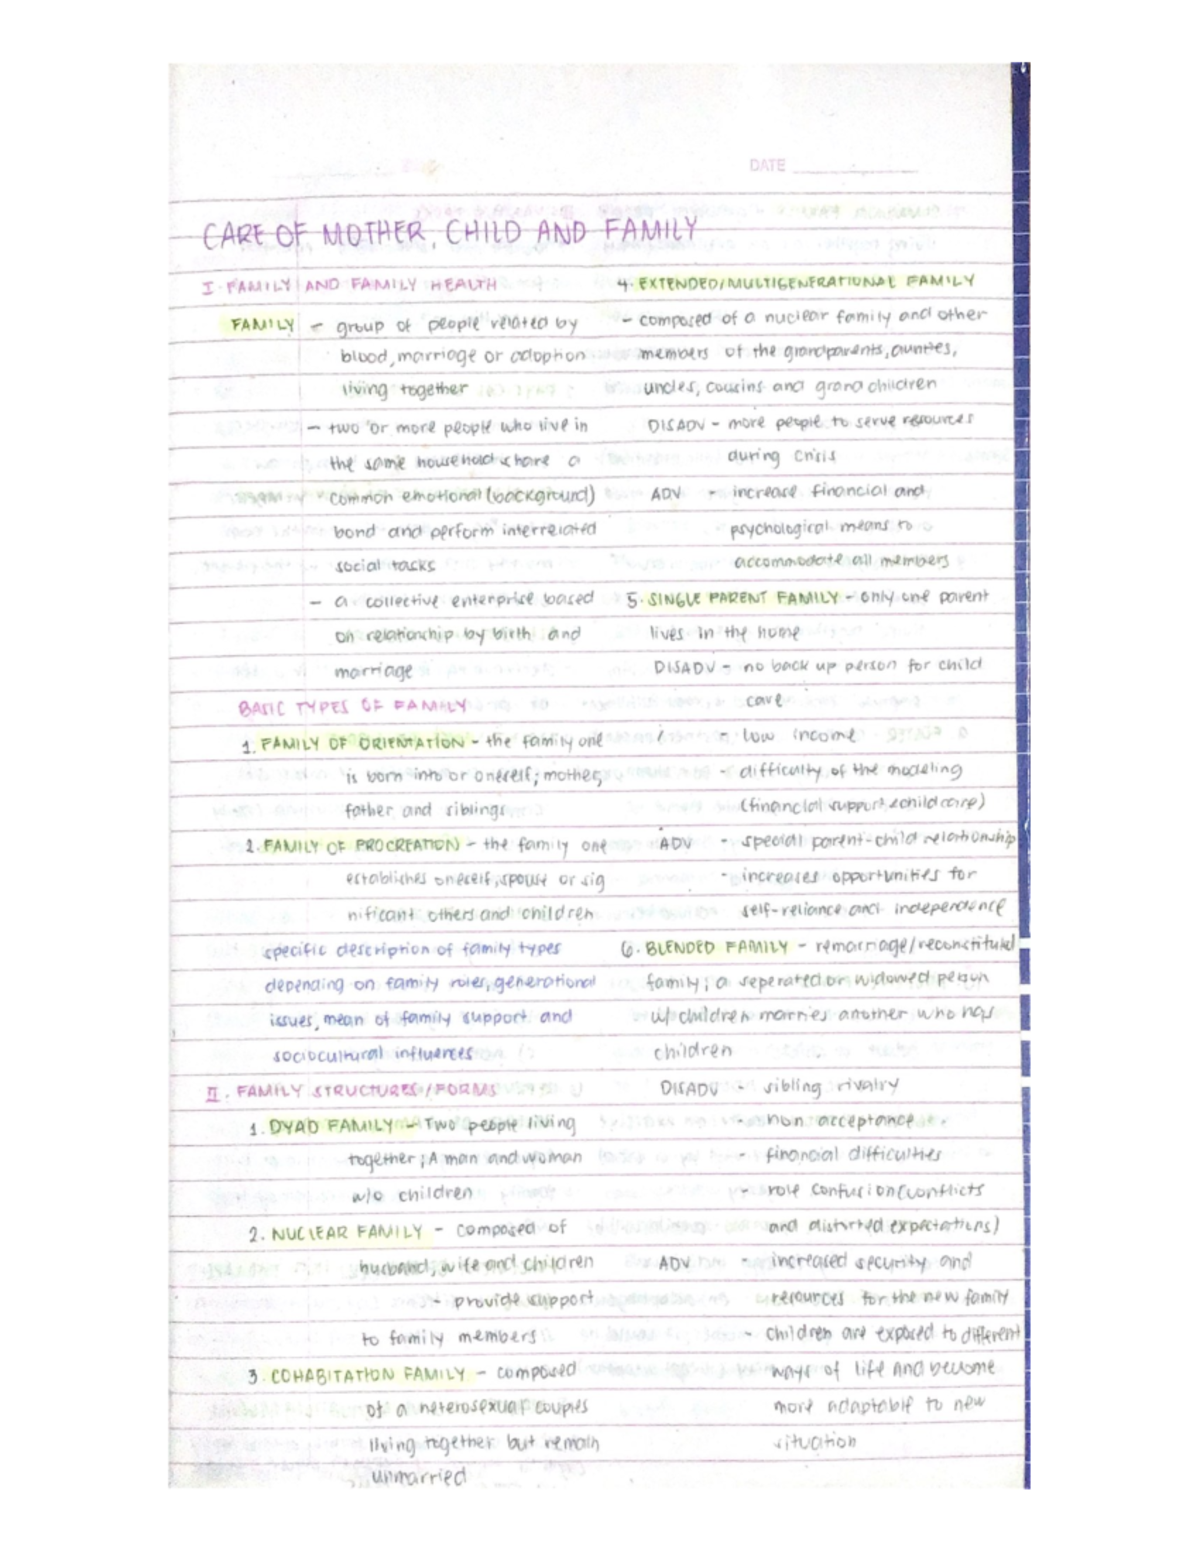 DATE
CARE OF MOTHER, CHILD AND FAMILY
I. FAMILY AND FAMILY HEALTH
FAMILY - group of people related by
blood, marriage or adoption
living together
- two or more people who live in
the same household share a
common emotional (background)
bond and perform interrelated
social tasks
- a collective enterprise based
on relationship by birth and
marriage
BASIC TYPES OF FAMILY
1. FAMILY OF ORIENTATION - the family one
is born into or oneself; mother,
father and siblings
2. FAMILY OF PROCREATION - the family one
establishes oneself, spouse or sig
nificant others and children
specific description of family types
depending on family roles, generational
issues, mean of family support and
sociocultural influences
II. FAMILY STRUCTURES/FORMS
1. DYAD FAMILY - Two people living
together; A man and woman
w/o children
2. NUCLEAR FAMILY - composed of
husband, wife and children
- provide support
to family members
3. COHABITATION FAMILY - composed
of a heterosexual couples
living together but remain
unmarried
4. EXTENDED/MULTIGENERATIONAL FAMILY
- composed of a nuclear family and other
members of the grandparents, aunties,
uncles, cousins and grand children
DISADV - more people to serve resources
during crisis
ADV - increase financial and
psychological means to
accommodate all members
5. SINGLE PARENT FAMILY - only one parent
lives in the home
DISADV - no back up person for child
care
- low income
- difficulty of the modeling
(financial support & child care)
ADV - special parent-child relationship
- increases opportunities for
self-reliance and independence
6. BLENDED FAMILY - remarriage/reconstituted
family; a seperated or widowed person
w/ children marries another who has
children
DISADV - sibling rivalry
- non acceptance
- financial difficulties
- role confusion (conflicts
and distorted expectations)
ADV - increased security and
resources for the new family
- children are exposed to different
ways of life and become
more adaptable to new
situation